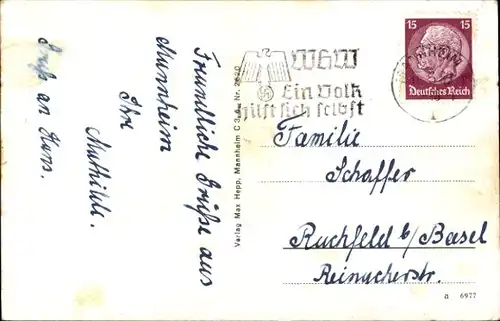 Freundliche Grüße aus
Mannheim
Ihre
Mathilde.
Gruß an Hans.
Verlag Max Hepp, Mannheim C 3, Nr. 2620
WHW
Ein Volk
hilft sich selbst
15 15
Deutsches Reich
Familie
Schaffer
Ruchfeld b/Basel
Reinacherstr.
a 6977